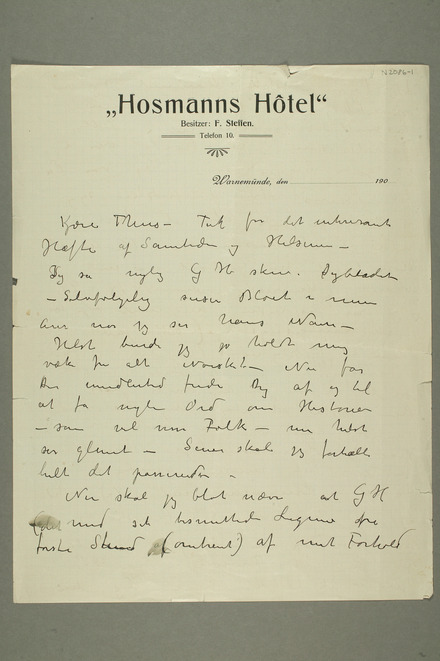 N 2086-1
„Hosmanns Hôtel“
Besitzer: F. Steffen.
Telefon 10.
Warnemünde, den 190
Kjære Thiis – Tak for det interessante
Hæfte af Samtiden og Hilsenen –
Jeg så nylig G H skrev i Dagbladet
– Selvfølgelig suser Blodet i mine
ører når jeg ser hans Navn –
Helst burde jeg jo holdt mig
væk fra alt Norskt – Nu får
De imidlertid finde Dig af og til
at få nogle Ord om Historier
– som vel min Folk – nu helst
ser glemt – Senere skal jeg fortælle
helt det passerede –
Nu skal jeg blot nævne at G H
med sit Legeme
første (omtrent) af mit Forhold